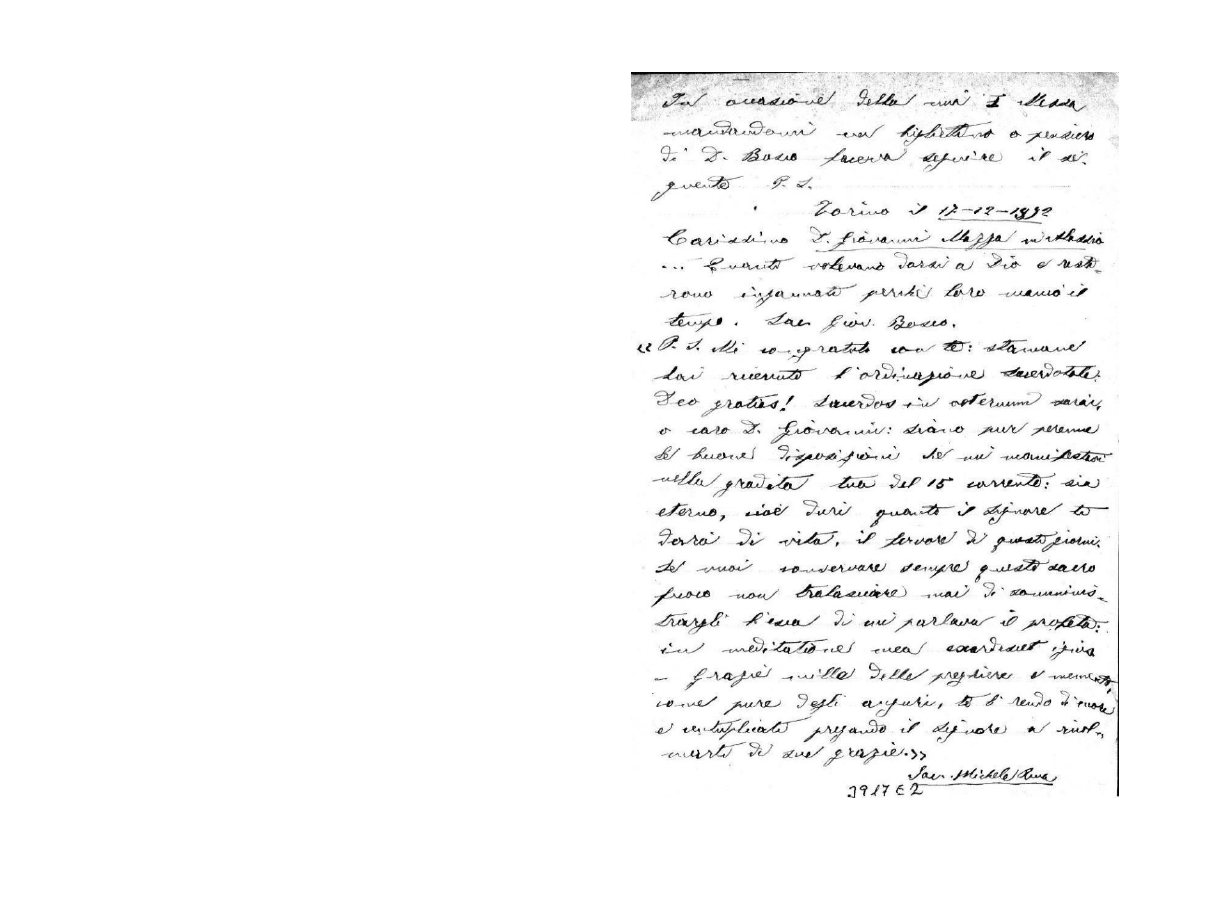 In occasione della mia I Messa
mandandomi un bigliettino o pensiero
di D. Bosco faceva seguire il se-
guente P. S.
Torino il 17-12-1892
Carissimo D. Giovanni Mazza in Alassio
... Quanti volevano darsi a Dio e resta-
rono ingannati perchè loro mancò il
tempo. Sac. Giov. Bosco.
« P. S. Mi congratulo con te: stamane
hai ricevuto l'ordinazione sacerdotale.
Deo gratias! Sacerdos in aeternum sarai,
o caro D. Giovanni: siano pur perenni
le buone disposizioni che mi manifestavi
nella gradita tua del 15 corrente: sia
eterno, cioè duri quanto il Signore ti
darà di vita, il fervore di questi giorni.
Se vuoi conservare sempre questo sacro
fuoco non tralasciare mai di somminis-
trargli l'esca di cui parlava il profeta:
in meditatione mea exardescet ignis
- Grazie mille delle preghiere e memento,
come pure degli auguri, te li rendo di cuore
e centuplicati pregando il Signore a ricol-
marti di sue grazie. »
Sac. Michele Rua
3917 E 2